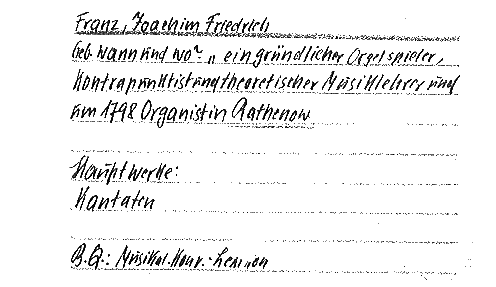 Franz, Joachim Friedrich
Geb. wann und wo? „ ein gründlicher Orgelspieler,
Kontrapunktist und theoretischer Musiklehrer und
um 1798 Organist in Rathenow
Hauptwerke:
Kantaten
B.Q.: Musikal. Konv.-Lexikon